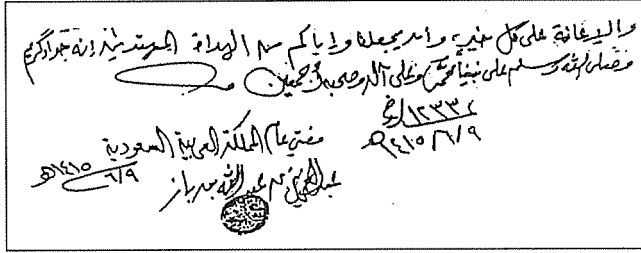 والإعانة على كل خير، وأن يجعلنا وإياكم من الهداة المهتدين إنه جواد كريم
وصلى الله وسلم على نبينا محمد وعلى آله وصحبه أجمعين
١٢٣٣٢/خ
١٤١٥/٦/٩هـ
مفتي عام المملكة العربية السعودية
٦/٩/١٤١٥هـ
عبدالعزيز بن عبدالله بن باز